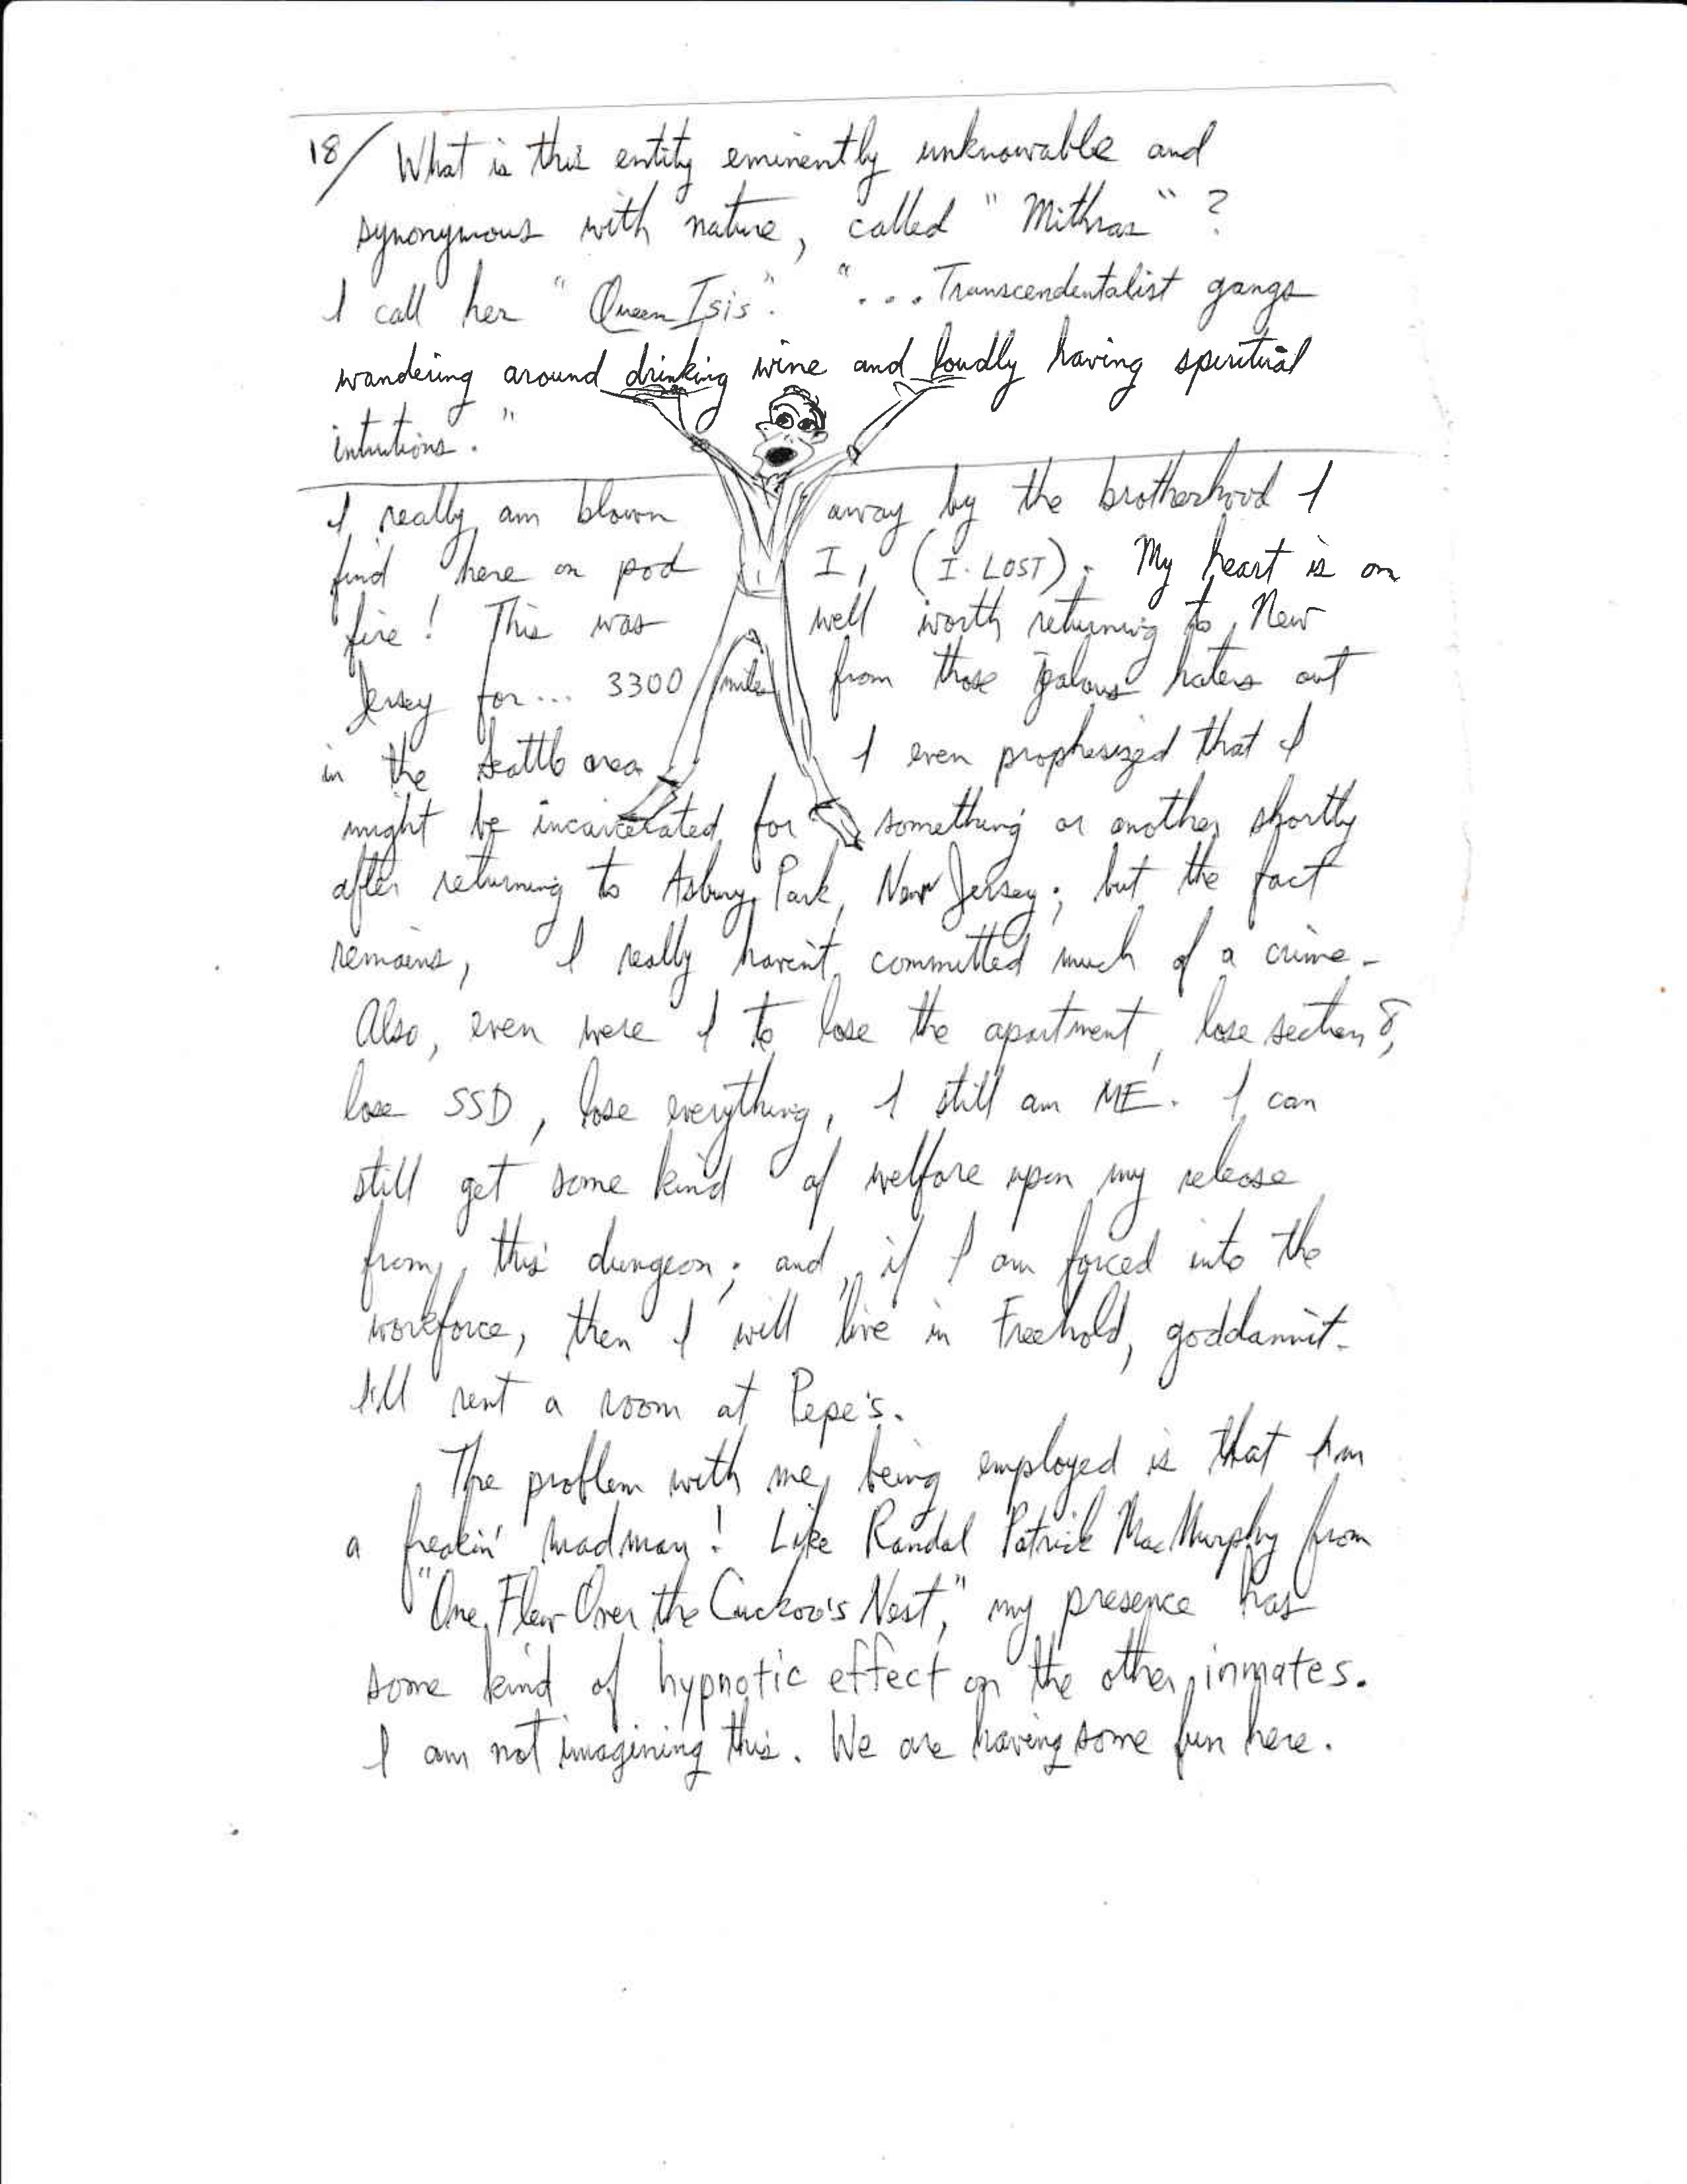 18/ What is this entity eminently unknowable and
synonymous with nature, called "Mithras"?
I call her "Queen Isis". "... Transcendentalist gangs
wandering around drinking wine and loudly having spiritual
intuitions."
I really am blown away by the brotherhood I
find here on pod I, (I. LOST). My heart is on
fire! This was well worth returning to New
Jersey for... 3300 miles from those jealous haters out
in the Seattle area I even prophesized that I
might be incarcerated for something or another shortly
after returning to Asbury Park, New Jersey; but the fact
remains, I really haven't committed much of a crime.
Also, even were I to lose the apartment, lose section 8,
lose SSD, lose everything, I still am ME. I can
still get some kind of welfare upon my release
from this dungeon; and, if I am forced into the
workforce, then I will live in Freehold, goddamnit.
I'll rent a room at Pepe's.
The problem with me being employed is that I'm
a freakin' madman! Like Randal Patrick MacMurphy from
"One Flew Over the Cuckoo's Nest," my presence has
some kind of hypnotic effect on the other inmates.
I am not imagining this. We are having some fun here.